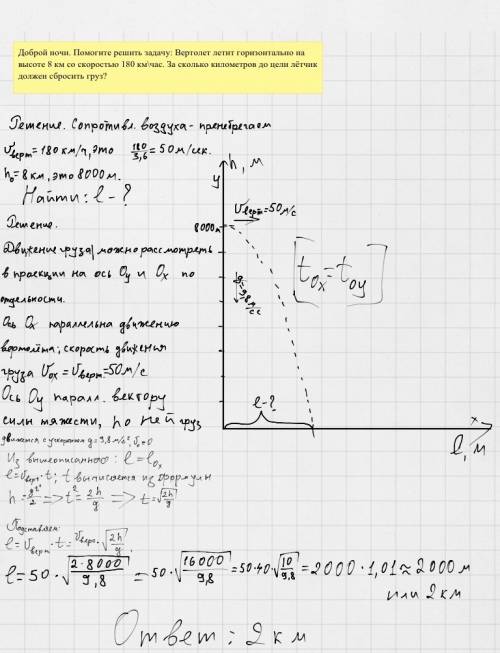 Доброй ночи. Помогите решить задачу: Вертолет летит горизонтально на
высоте 8 км со скоростью 180 км\час. За сколько километров до цели лётчик
должен сбросить груз?
Решение. Сопротивл. воздуха - пренебрегаем
v верт = 180 км/ч, это 180/3,6 = 50 м/сек.
h₀ = 8 км, это 8000 м.
Найти: l - ?
Решение.
Движение груза можно рассмотреть
в проекции на ось Oy и Ox по
отдельности.
Ось Ox параллельна движению
вертолёта; скорость движения
груза Vox = Vверт = 50 м/с
Ось Oy паралл. вектору
силы тяжести, по ней груз
движется с ускорением g = 9,8 м/с², v₀ = 0
Из вышеописанного: l = lox
l = vверт · t; t вычисляется из формулы
h = gt²/2 => t² = 2h/g => t = √(2h/g)
Подставляем:
l = vверт · t = vверт · √(2h/g).
l = 50 · √(2·8000/9,8) = 50 · √(16000/9,8) = 50·40·√(10/9,8) = 2000 · 1,01 ≈ 2000 м
или 2 км
Ответ: 2 км
y
h, м
8000м
Vверт = 50 м/с
g = 9,8 м/сс
[tox = toy]
l - ?
x
l, м